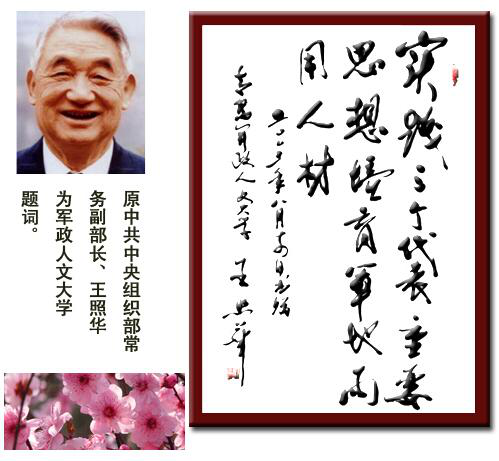 原中共中央组织部常
务副部长、王照华
为军政人文大学
题词。
实践三个代表重要
思想培育军地两
用人材
年八月
军政人文大学 王照华